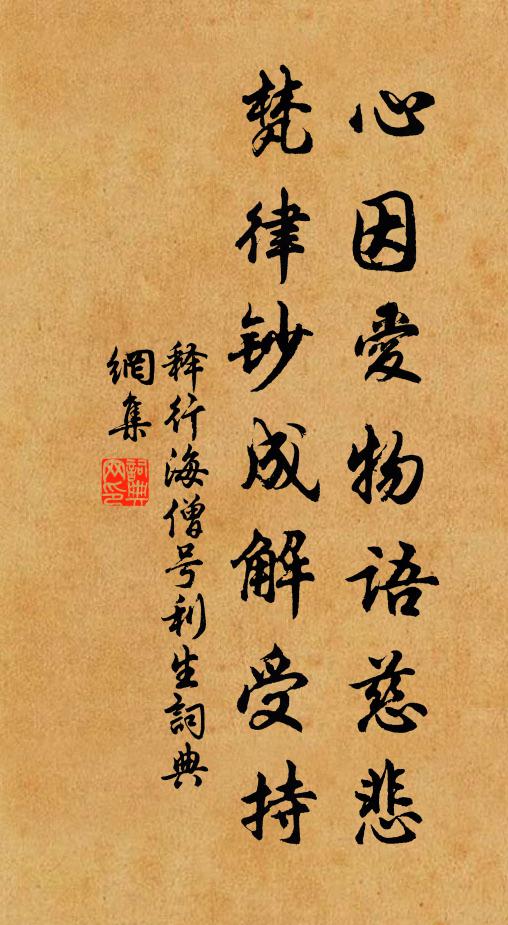 心因愛物語慈悲
梵律鈔成解受持
释行海僧号利生詞典
網集
詞典
网印